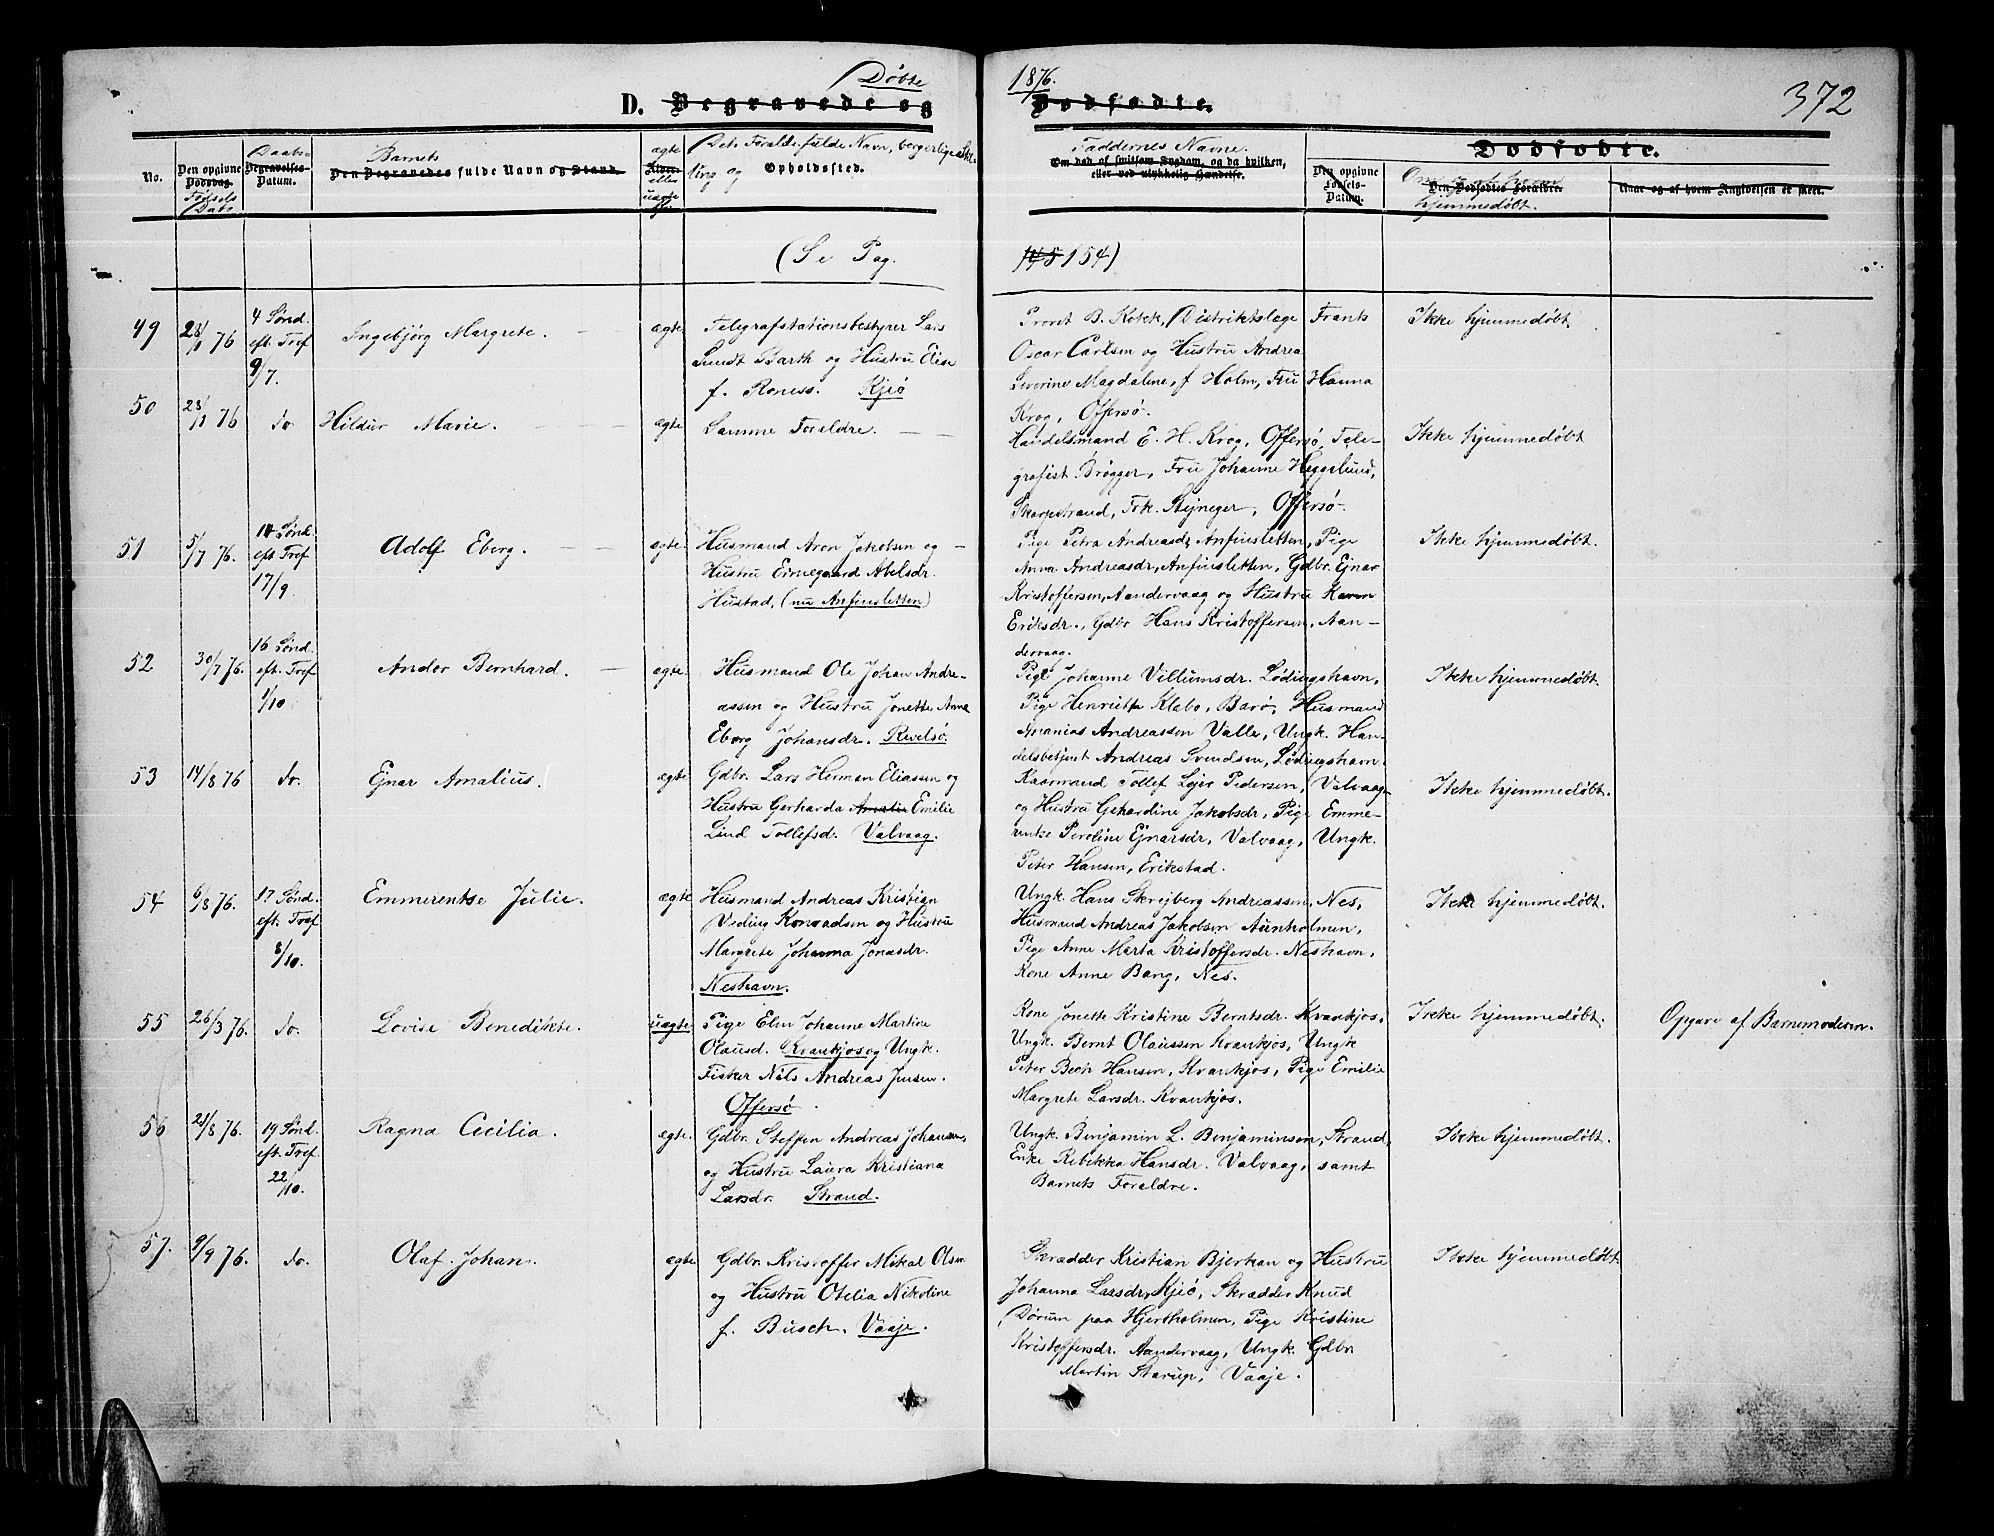 Døbte
1876.
372
D. Begravede og
Dødfødte.
No.
Den opgivne Dødsdag. Fødsels Dato
Daabs- Begravelses- Datum.
Barnets
Den Begravedes fulde Navn og Stand.
ægte eller uægte
fulde Navn, borgerlige
og Opholdssted.
Faddernes Navne.
Om død af smitsom Sygdom, og da hvilken,
eller ved ulykkelig Hændelse.
Dødfødte.
Den opgivne Fødsels- Datum.
Den Dødfødtes Forældre.
hjemmedøbt.
Naar og af hvem Angivelsen er skeet.
(Se Pag.
145 154)
49
28/1 76
4 Sønd. eft. Tref 9/7.
Ingebjørg Margrete.
ægte
Telegrafstationsbestyrer Lars
Sundt Barth og Hustru Elise
f. Roness. Kjeø
Provst B. Kokk, Distriktslæge Frants
Oscar Carlsen og Hustru Andrea
Severine Magdalene, f Holm, Fru Hanna
Krog, Offersø.
Ikke hjemmedøbt
50
28/1 76
do.
Hildur Marie.
ægte
Samme Forældre.
Handelsmand E. H. Krog, Offersø, Tele-
grafist Brøgger, Fru Johanne Heggelund,
Skarpstrand, Frk. Stejneger, Offersø.
Ikke hjemmedøbt
51
5/7 76.
14 Sønd. eft Tref 17/9
Adolf Eberg.
ægte
Husmand Aron Jakobsen og
Hustru Ermegaard Abelsdr.
Hustad, (nu Anfinsletten)
Pige Petra Andreasd, Anfinsletten, Pige
Anna Andreasdr, Anfinsletten, Gdbr. Ejnar
Kristoffersen, Aandervaag og Hustru Karen
Eriksdr., Gdbr Hans Kristoffersen, Aan-
dervaag.
Ikke hjemmedøbt.
52
30/7 76.
16 Sønd. eft. Tref 1/10
Andor Bernhard.
ægte
Husmand Ole Johan Andre-
assen og Hustru Jonette Anna
Eberg Johansdr. Revelsø
Pige Johanne Villumsdr. Lødingshavn,
Pige Henriette Klæbo, Barø, Husmand
Ananias Andreassen Valle, Ungk. Han-
delsbetjent Andreas Svendsen, Lødingshavn.
Ikke hjemmedøbt.
53
14/8 76
do.
Ejnar Amalius.
ægte
Gdbr. Lars Herman Eliassen og
Hustru Gerharda Amalie Emilie
Lind Tollefsd. Valvaag.
Kaarmand Tollef Lejer Pedersen, Valvaag
og Hustru Gehardine Jakobsdr, Pige Emme-
rentse Peroline Ejnarsdr, Valvaag, Ungk.
Peter Hansen, Erikstad.
Ikke hjemmedøbt.
54
6/8 76.
17 Sønd. eft. Tref 8/10.
Emmerentse Julie.
ægte
Husmand Andreas Kristian
Viding Konradsen og Hustru
Margrete Johanna Jonasdr.
Neshavn.
Ungk. Hans Skrejberg Andreassen, Nes,
Husmand Andreas Jakobsen Aunholmen,
Pige Anne Marta Kristoffersdr. Neshavn,
Kone Anne Bang, Nes.
Ikke hjemmedøbt.
55
26/3 76.
do.
Lovise Benedikte.
uægte
Pige Elen Johanne Martine
Olausd. Kvankjos og Ungk.
Fisker Nils Andreas Jensen.
Offersø.
Kone Jonette Kristine Berntsdr. Kvankjos.
Ungk. Bernt Olaussen Kvankjos, Ungk
Peter Bech Hansen, Kvankjos, Pige Emilie
Margrete Larsdr. Kvankjos.
Ikke hjemmedøbt.
Opgave af Barnemoderen.
56
21/8 76.
19 Sønd. eft. Tref. 22/10.
Ragna Cecilia.
ægte.
Gdbr. Steffen Andreas Johansen,
og Hustru Laura Kristiana
Larsdr. Strand.
Ungk. Benjamin L. Benjaminsen, Strand,
Enke Rebekka Hansdr. Valvaag, samt
Barnets Forældre.
Ikke hjemmedøbt.
57.
9/9 76.
do.
Olaf Johan.
ægte
Gdbr. Kristoffer Mikal Olsen
og Hustru Otelia Nikoline
f. Busch. Vaaje.
Skrædder Kristian Bjerkan og Hustru
Johanna Larsdr, Kjeø, Skrædder Knud
Dørum paa Hjertholmen, Pige Kristine
Kristoffersdr. Aandervaag, Ungk. Gdbr.
Martin Starup, Vaaje.
Ikke hjemmedøbt